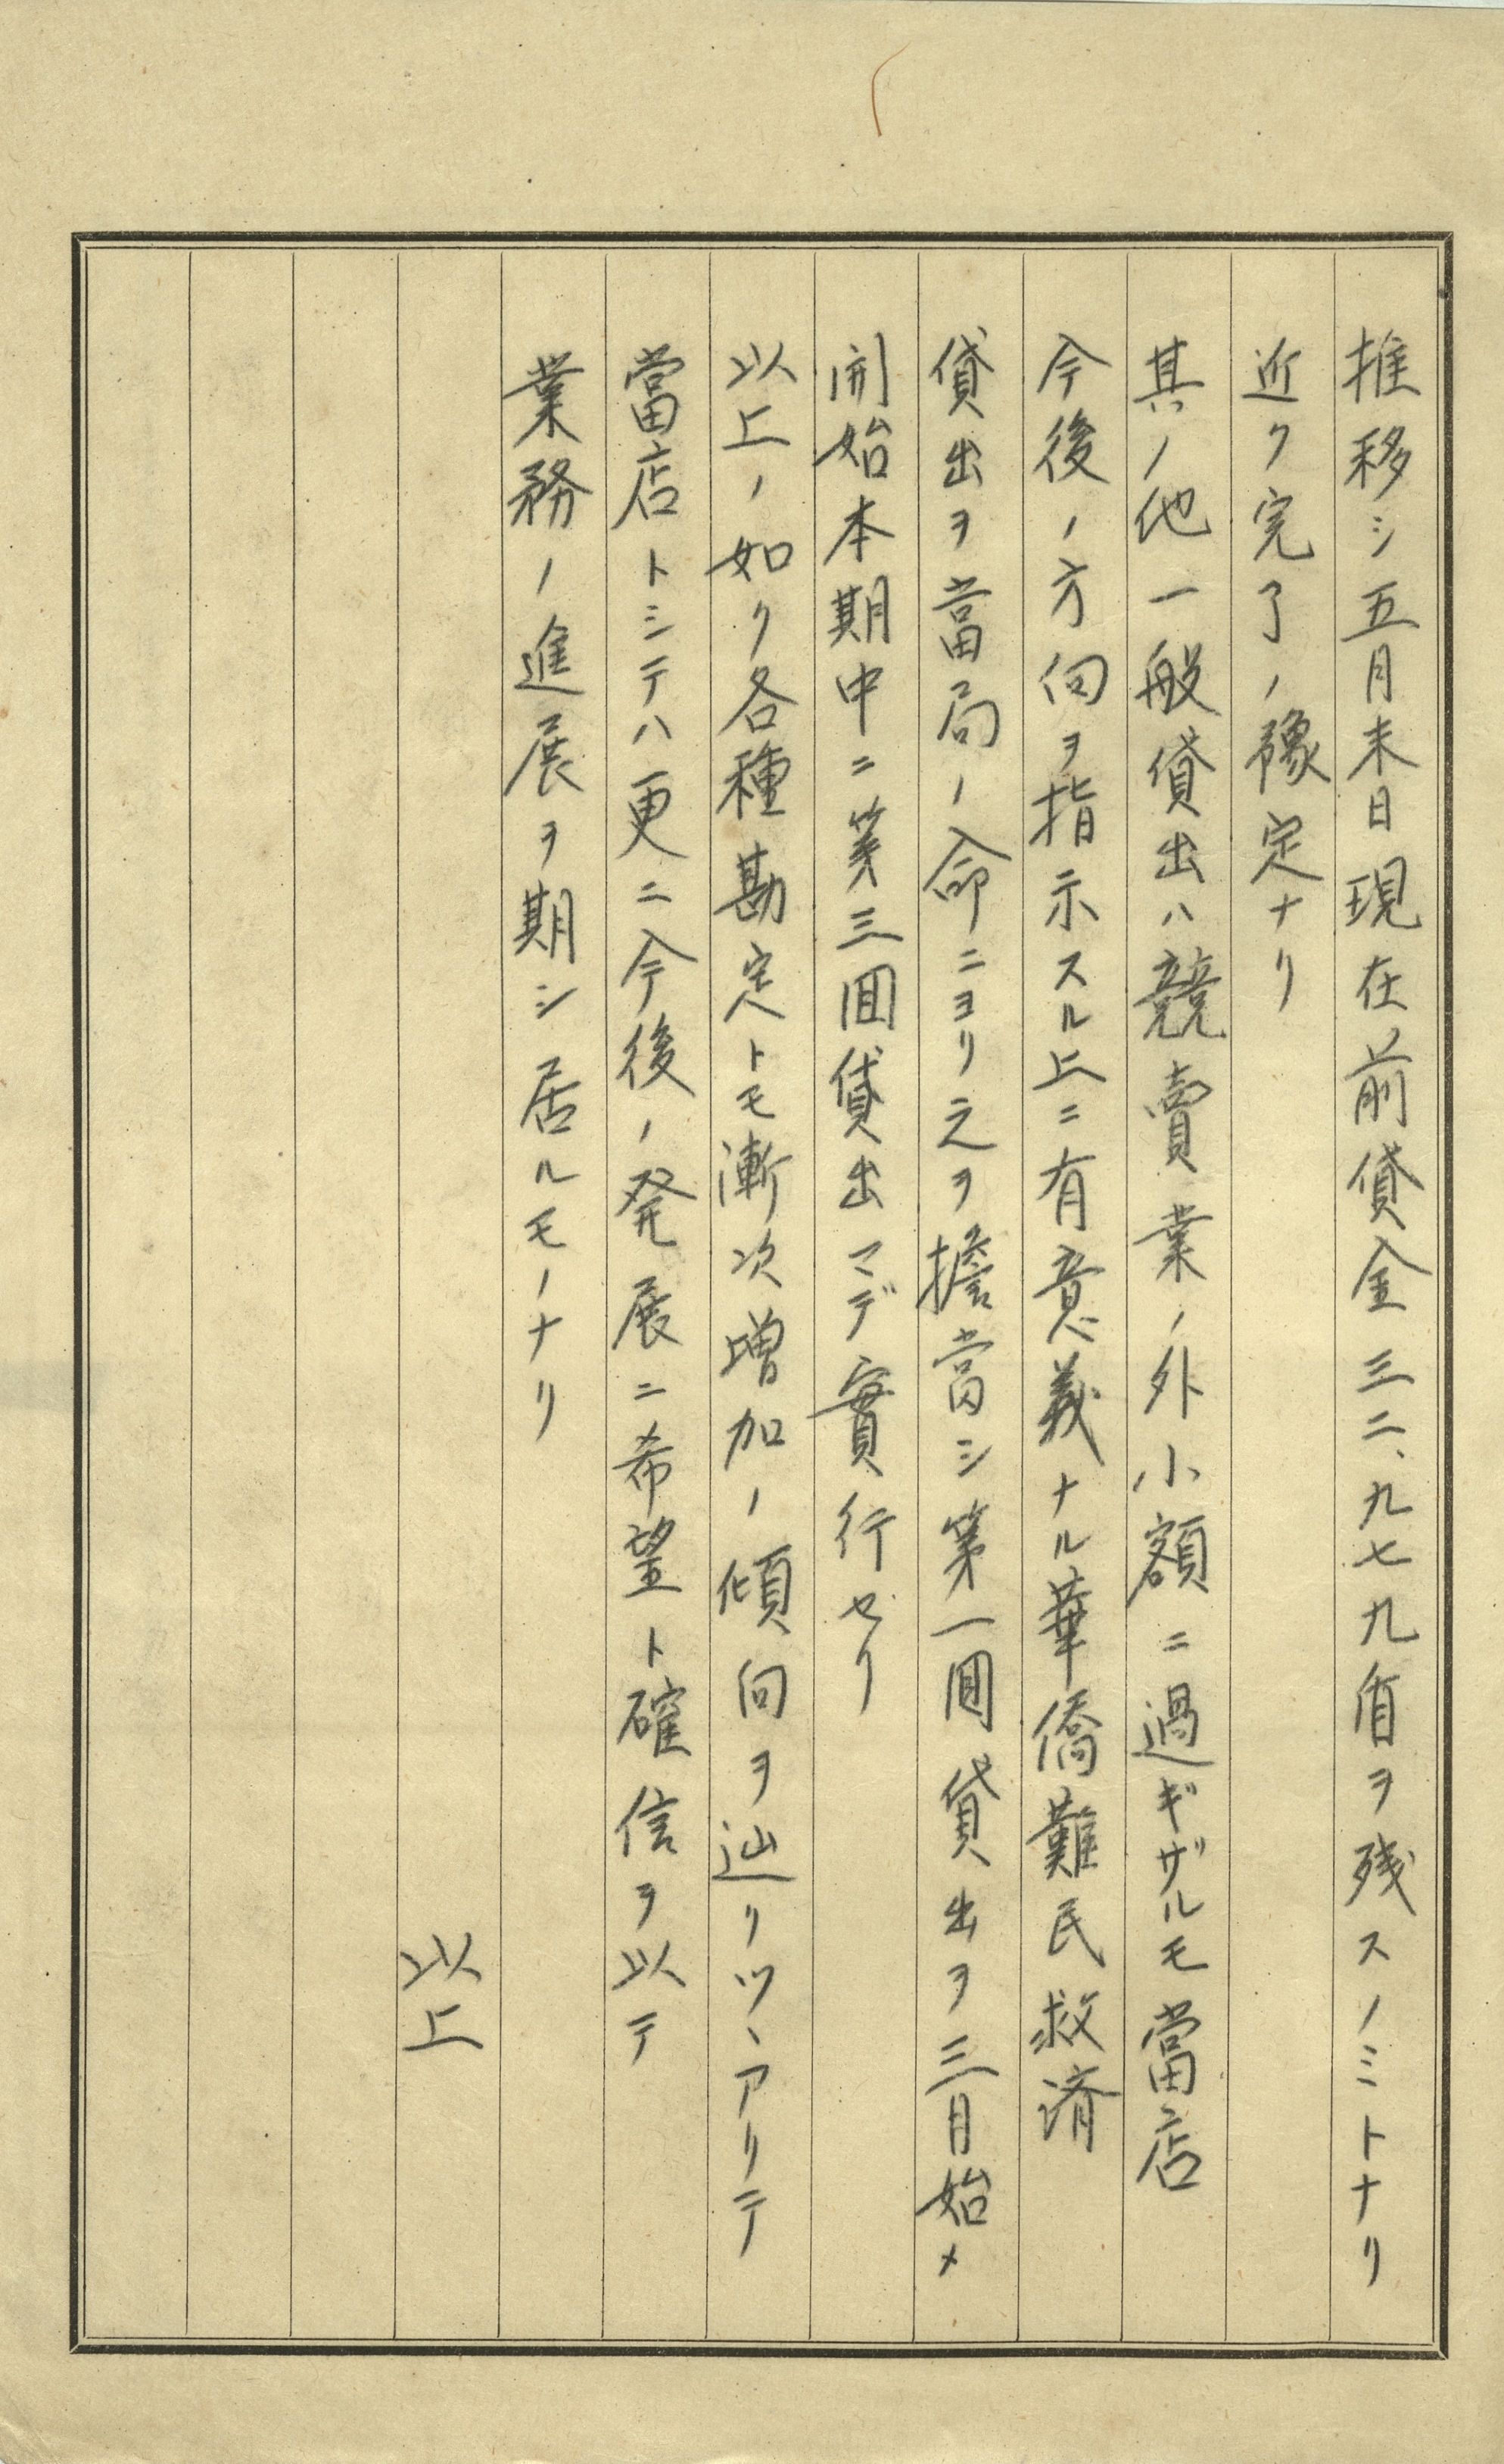 推移シ五月末日現在前貸金三二、九七九盾ヲ残スノミトナリ
近ク完了ノ豫定ナリ
其ノ他一般貸出ハ競賣業ノ外小額ニ過ギザルモ當店
今後ノ方向ヲ指示スル上ニ有意義ナル華僑難民救済
貸出ヲ當局ノ命ニヨリ之ヲ擔當シ第一回貸出ヲ三月始メ
開始本期中ニ第三回貸出マデ實行セリ
以上ノ如ク各種勘定トモ漸次増加ノ傾向ヲ辿リツヽアリテ
當店トシテハ更ニ今後ノ発展ニ希望ト確信ヲ以テ
業務ノ進展ヲ期シ居ルモノナリ
以上